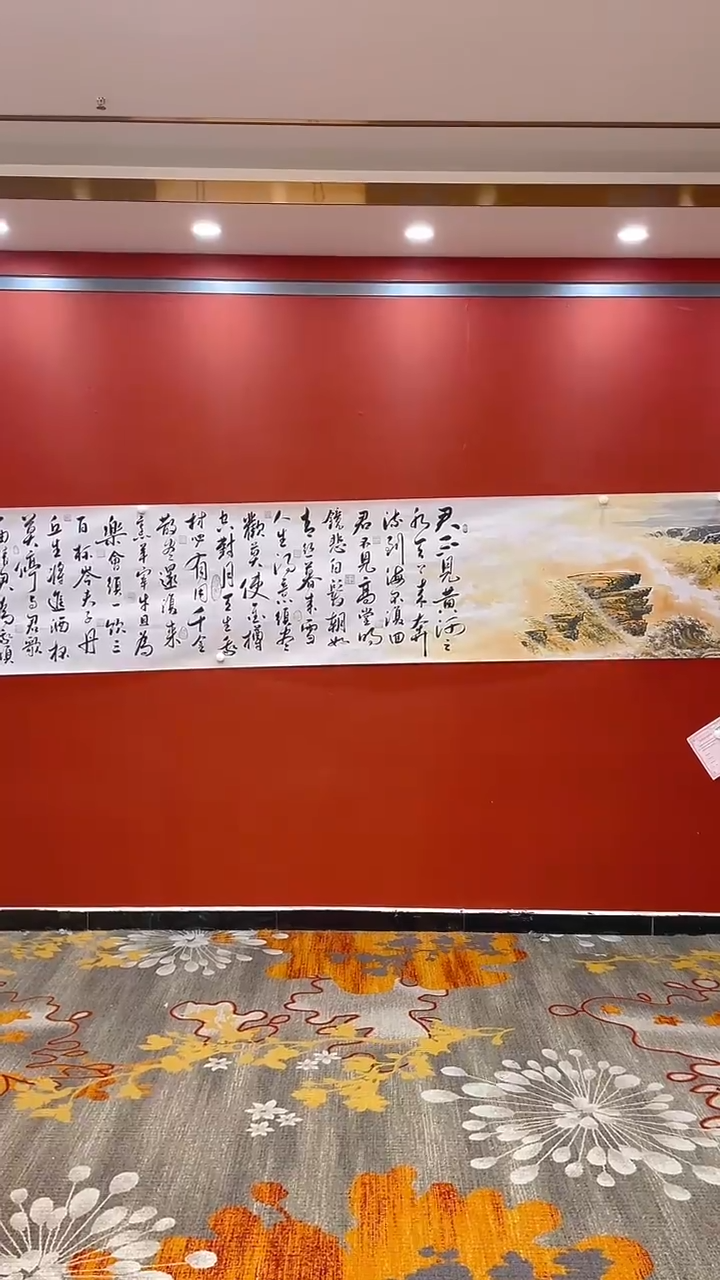 君不見黃河之
水天上来奔
流到海不復回
君不見高堂明
鏡悲白髮朝如
青丝暮成雪
人生得意須尽
歡莫使金樽
空對月天生我
材必有用千金
散尽還復来
烹羊宰牛且為
樂會須一飲三
百杯岑夫子丹
丘生將進酒杯
莫停与君歌